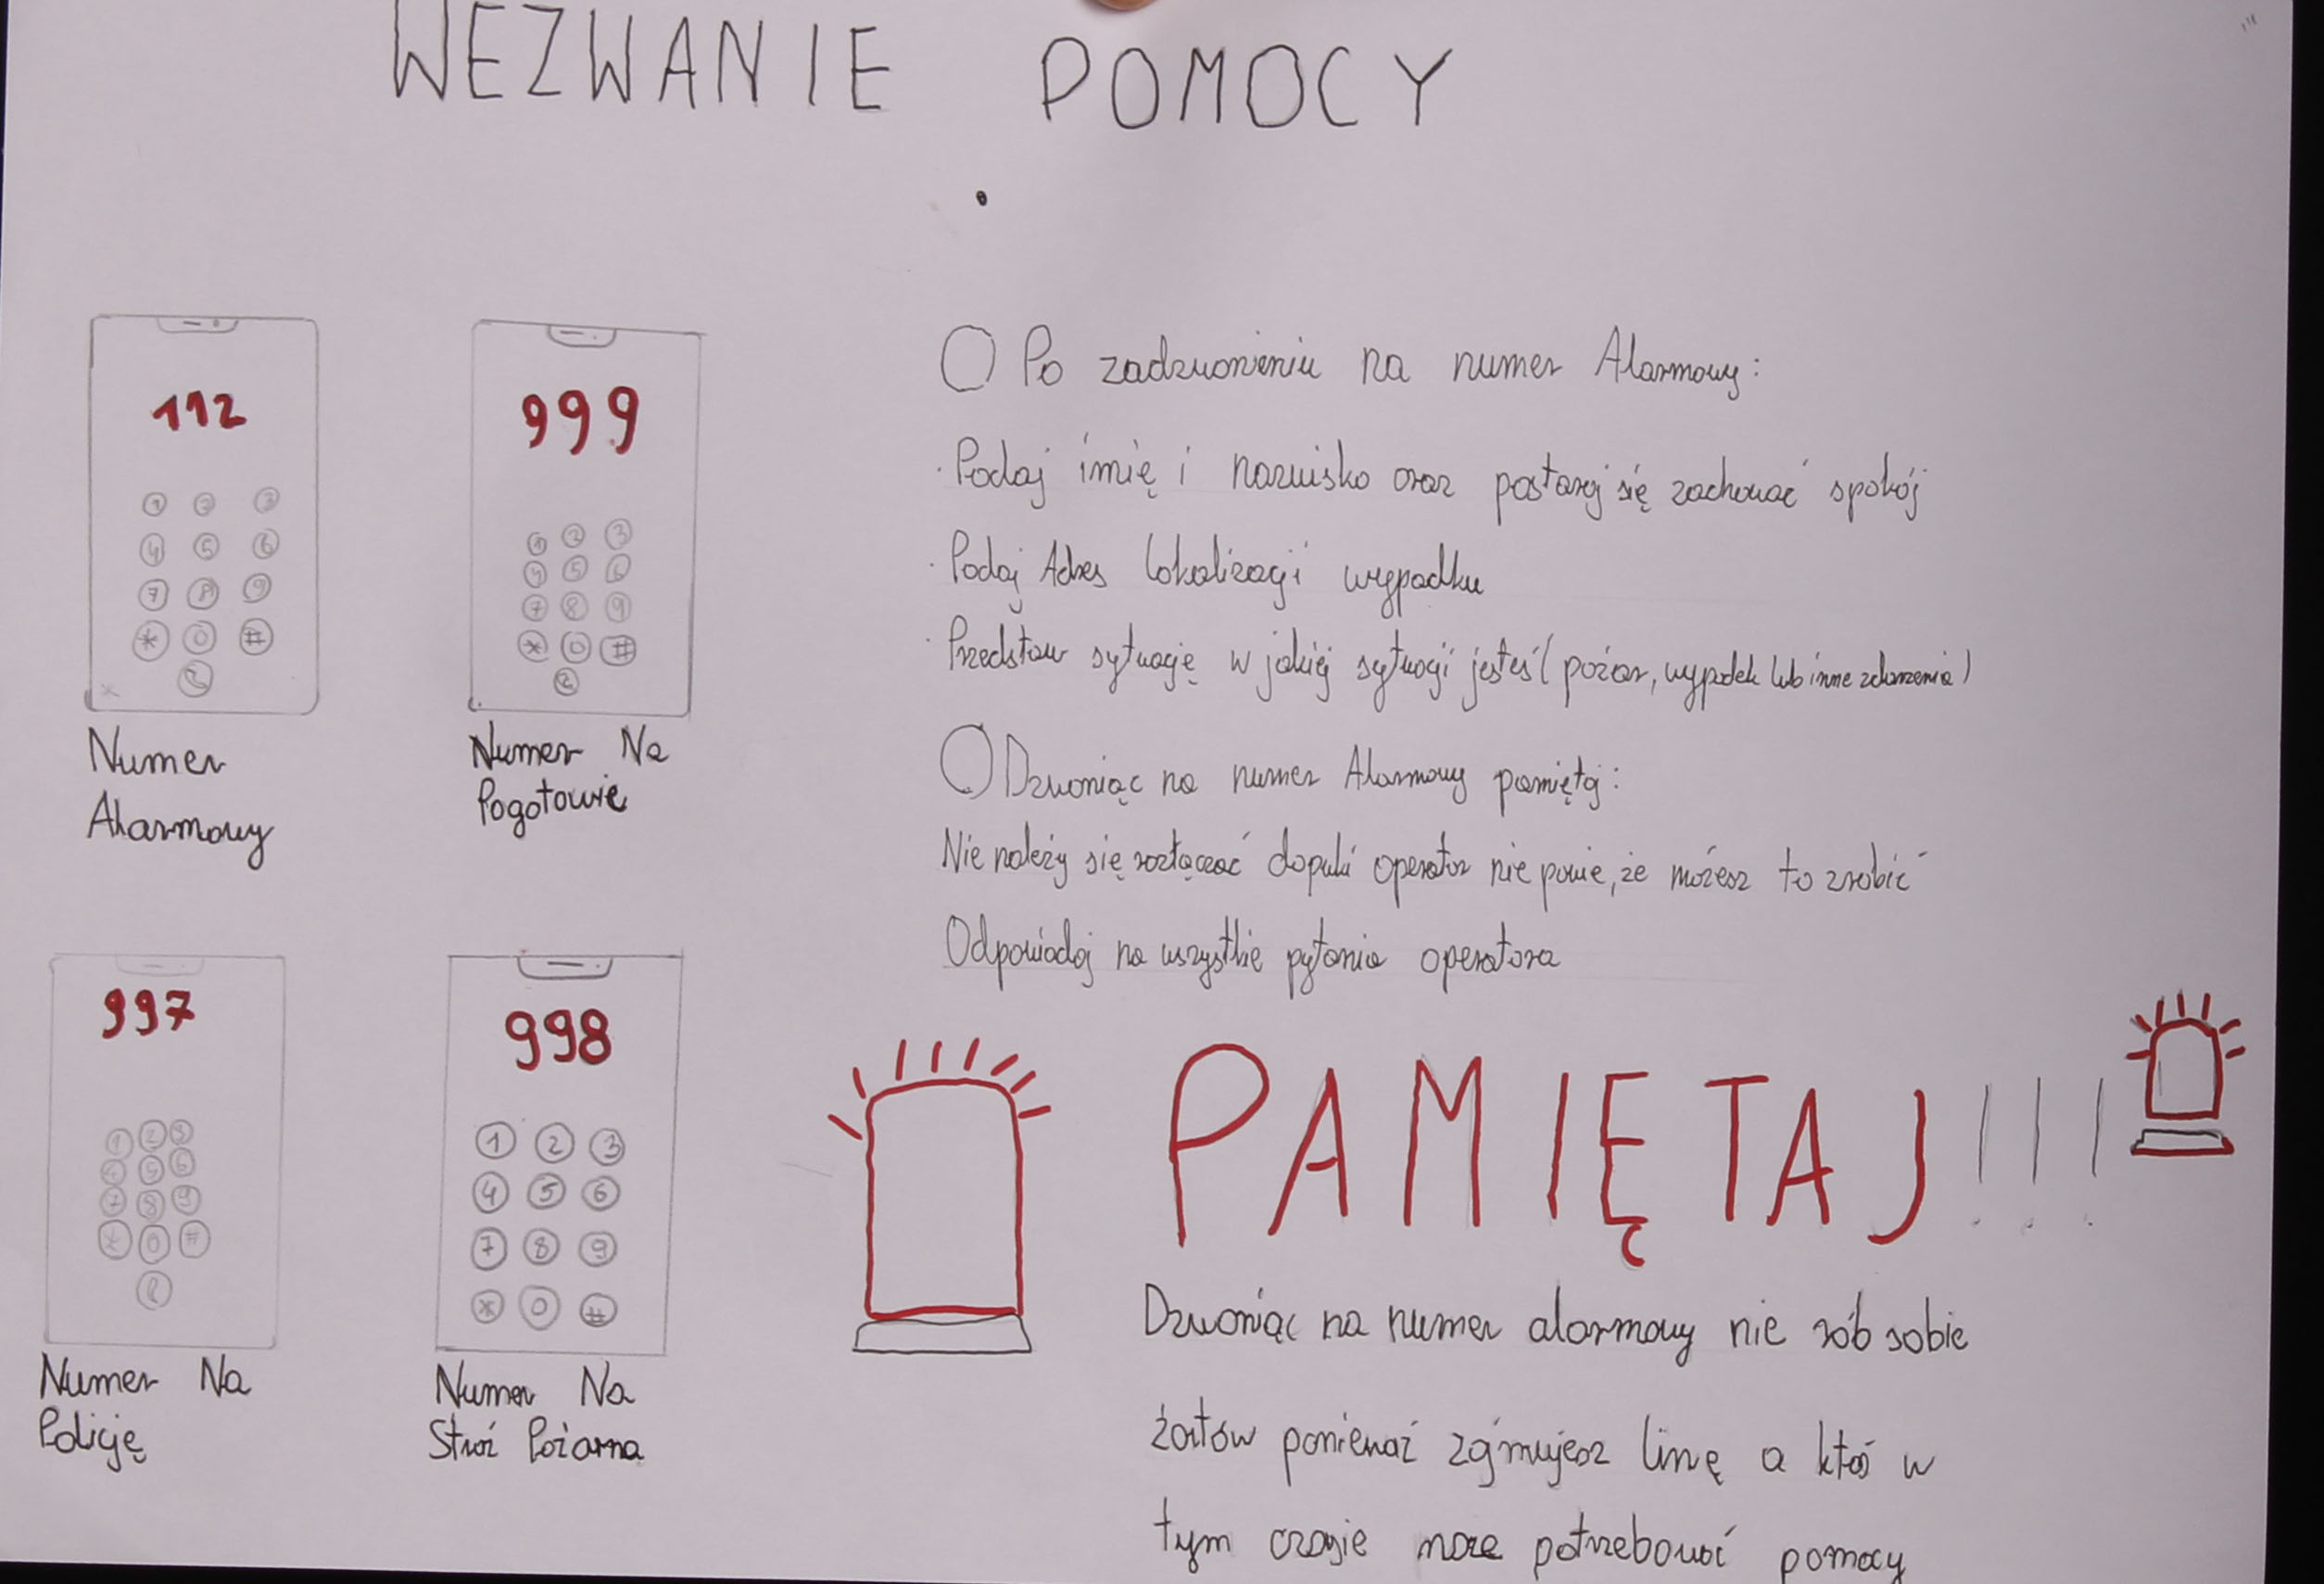 WEZWANIE POMOCY
112
1 2 3
4 5 6
7 8 9
* 0 #
Numer
Alarmowy
999
1 2 3
4 5 6
7 8 9
* 0 #
Numer Na
Pogotowie
997
1 2 3
4 5 6
7 8 9
* 0 #
Numer Na
Policję
998
1 2 3
4 5 6
7 8 9
* 0 #
Numer Na
Straż Pożarna
Po zadzwonieniu na numer Alarmowy:
· Podaj imię i nazwisko oraz postaraj się zachować spokój
· Podaj Adres lokalizacji wypadku
· Przedstaw sytuację w jakiej sytuacji jesteś (pożar, wypadek lub inne zdarzenia)
Dzwoniąc na numer Alarmowy pamiętaj:
Nie należy się rozłączać dopuki operator nie powie, że możesz to zrobić
Odpowiadaj na wszystkie pytania operatora
PAMIĘTAJ!!!
Dzwoniąc na numer alarmowy nie rób sobie
żartów ponieważ zajmujesz linę a ktoś w
tym czasie może potrzebować pomocy